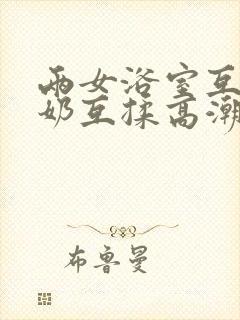 两女浴室互
奶互揉高潮
布鲁曼